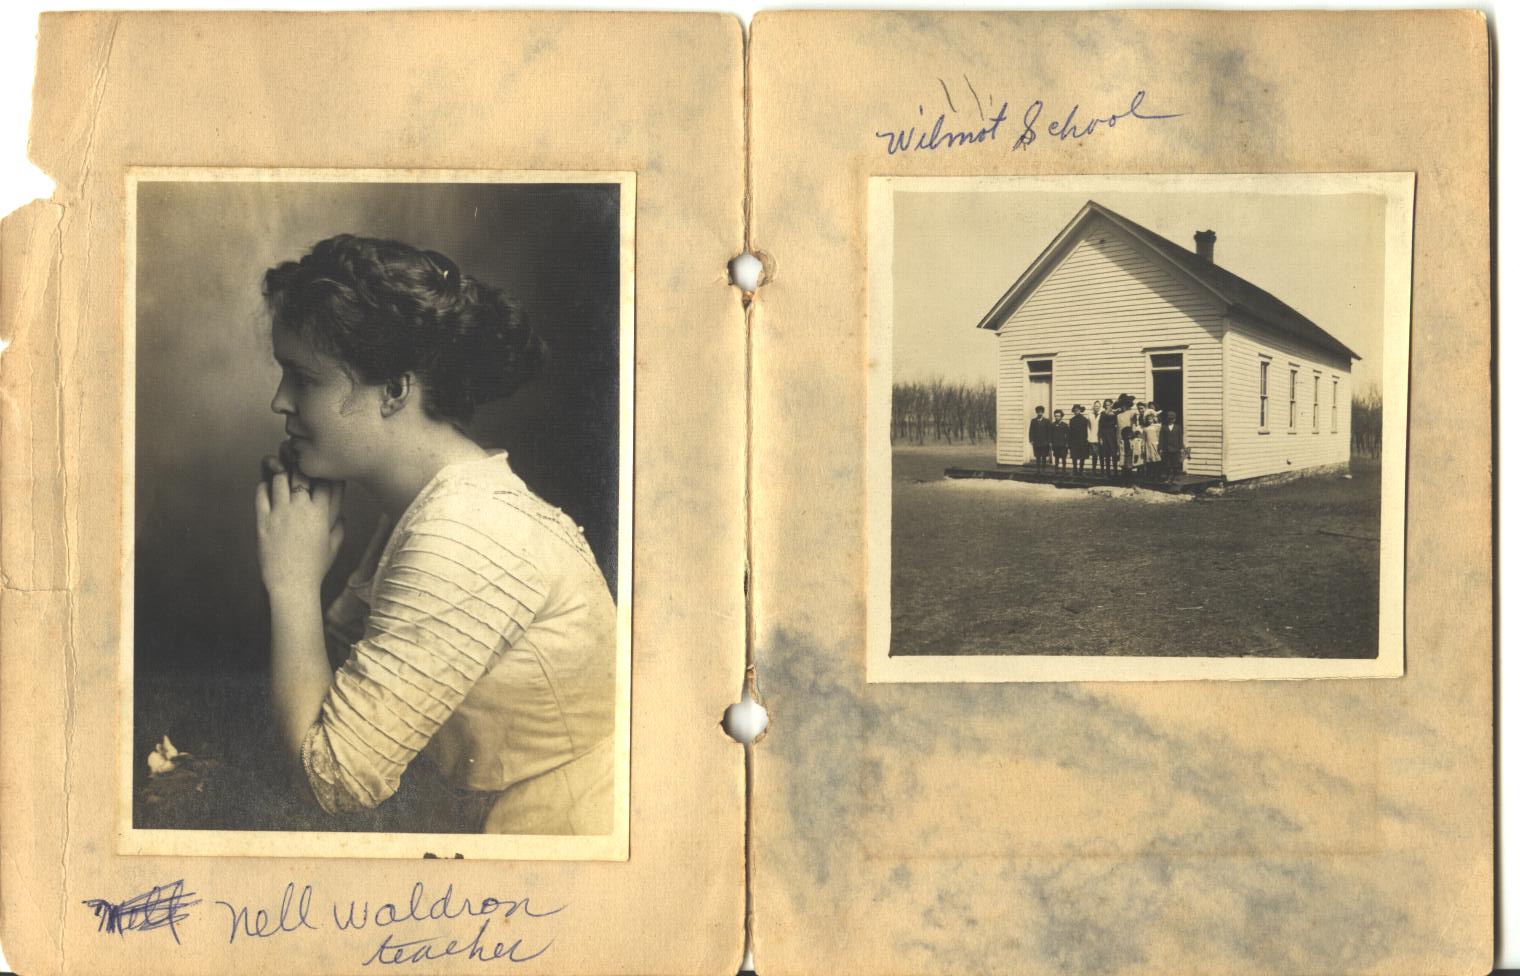 Wilmot School
Nell Waldron
teacher